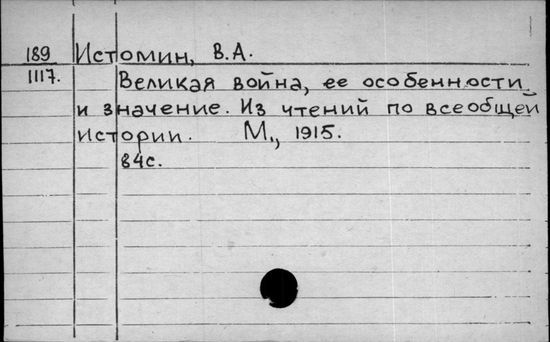 189 Истомин, В.А.
1117. Великая война, ее особенности
и значение. Из чтений по всеобщей
истории. М., 1915.
84с.